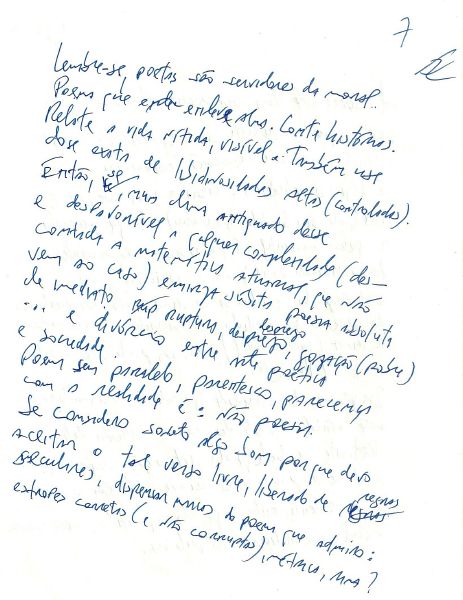 7
Lembre-se, poetas são servidores da moral.
Poema que enleve almas. Conte histórias.
Relate a vida nítida, visível. Também use
dose exata de libidinosidades altas (controladas).
Então, se, num clima antiquado desse
e desfavorável a qualquer complexidade (des-
contada a matemática atuarial, que não
vem ao caso) emerja súbita poesia absoluta
de imediato ruptura, desprezo, gozação (pobre)
... e divórcio entre arte poética
e sociedade.
Poema sem paralelo, parentesco, parecença
com a realidade é: não poesia.
Se considero soneto algo bom por que devo
aceitar o tal verso livre, liberado de regras
seculares, dispensar numa do poema que admiro:
estrofes corretas (e não corruptas), métrica, rima?